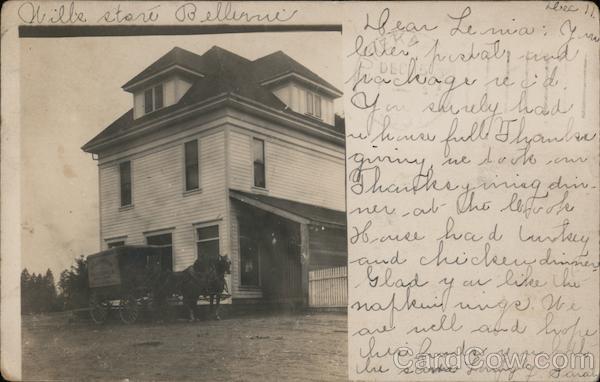 Wills store Bellevue
Dec 11
Dear Lenia: Your
letter, postals and
package rec'd.
You surely had
a house full Thanks
giving, we took our
Thanksgiving din-
ner at the Cook
House had turkey
and chicken dinner
Glad you like the
napkin rings. We
are well and hope
be same
CardCow.com